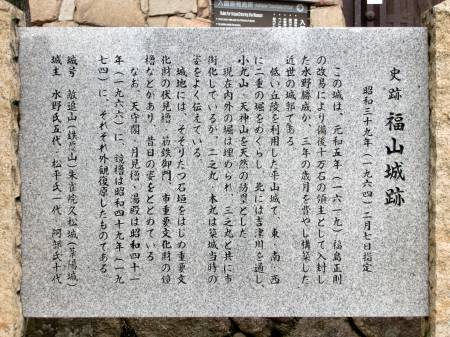 史跡 福山城跡
昭和三十九年(一九六四)二月七日指定
この城は、元和五年(一六一九)福島正則
の改易により備後十万石の領主として入封し
た水野勝成が、三年の歳月を費やし構築した
近世の城郭である
低い丘陵を利用した平山城で、東・南・西
に二重の堀をめぐらし、北には吉津川を通し
小丸山、天神山を天然の防塁とした
現在内外の堀は埋められ、三之丸と共に市
街化しているが、二之丸・本丸は築城当時の
姿をよく伝えている
城地には、そそりたつ石垣をはじめ重要文
化財の伏見櫓、筋鉄御門、市重要文化財の鐘
櫓などがあり、昔日の姿をとどめている
なお、天守閣、月見櫓、湯殿は昭和四十一
年(一九六六)に、鏡櫓は昭和四十九年(一九
七四)に、それぞれ外観復原したものである
城号 敵追山(鉄覆山)朱雀院久松城(葦陽城)
城主 水野氏五代、松平氏一代、阿部氏十代